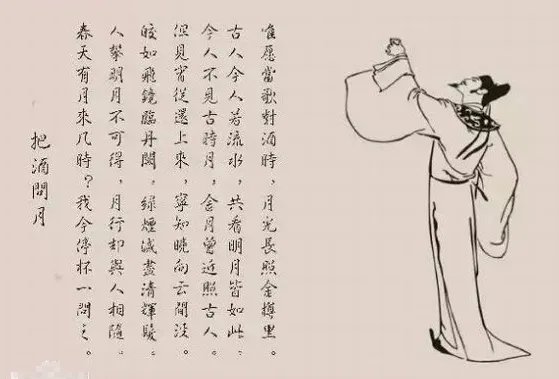 把酒問月
春天有月來几時?我今停杯一問之。
人攀明月不可得,月行却與人相隨。
皎如飛鏡臨丹闕,綠煙滅盡清輝發。
但見宵從還上來,寧知曉向云間沒。
今人不見古時月,今月曾近照古人。
古人今人若流水,共看明月皆如此。
唯愿當歌對酒時,月光長照金樽里。